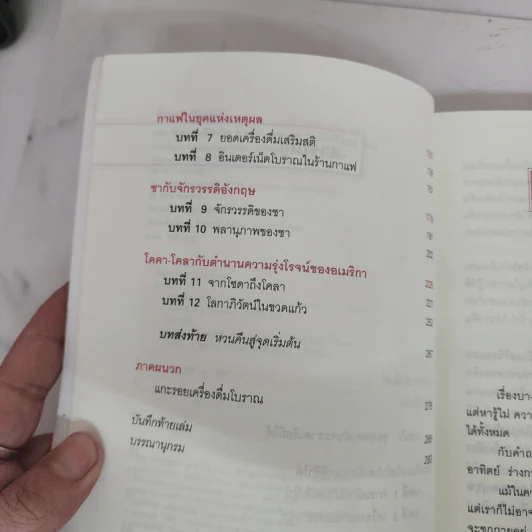 กาแฟในยุคแห่งเหตุผล
บทที่ 7 ยอดเครื่องดื่มเสริมสติ
บทที่ 8 อินเตอร์เน็ตโบราณในร้านกาแฟ
ชากับจักรวรรดิอังกฤษ
บทที่ 9 จักรวรรดิของชา
บทที่ 10 พลานุภาพของชา
โคคา-โคลากับตำนานความรุ่งโรจน์ของอเมริกา
บทที่ 11 จากโซดาถึงโคลา
บทที่ 12 โลกาภิวัตน์ในขวดแก้ว
บทส่งท้าย หวนคืนสู่จุดเริ่มต้น
ภาคผนวก
แกะรอยเครื่องดื่มโบราณ
บันทึกท้ายเล่ม
บรรณานุกรม
เรื่องบาง
แต่หารู้ไม่ ความ
ได้ทั้งหมด
กับคำถ
อาทิตย์ ร่างก
แม้ในค
แต่เราก็ไม่อาจ